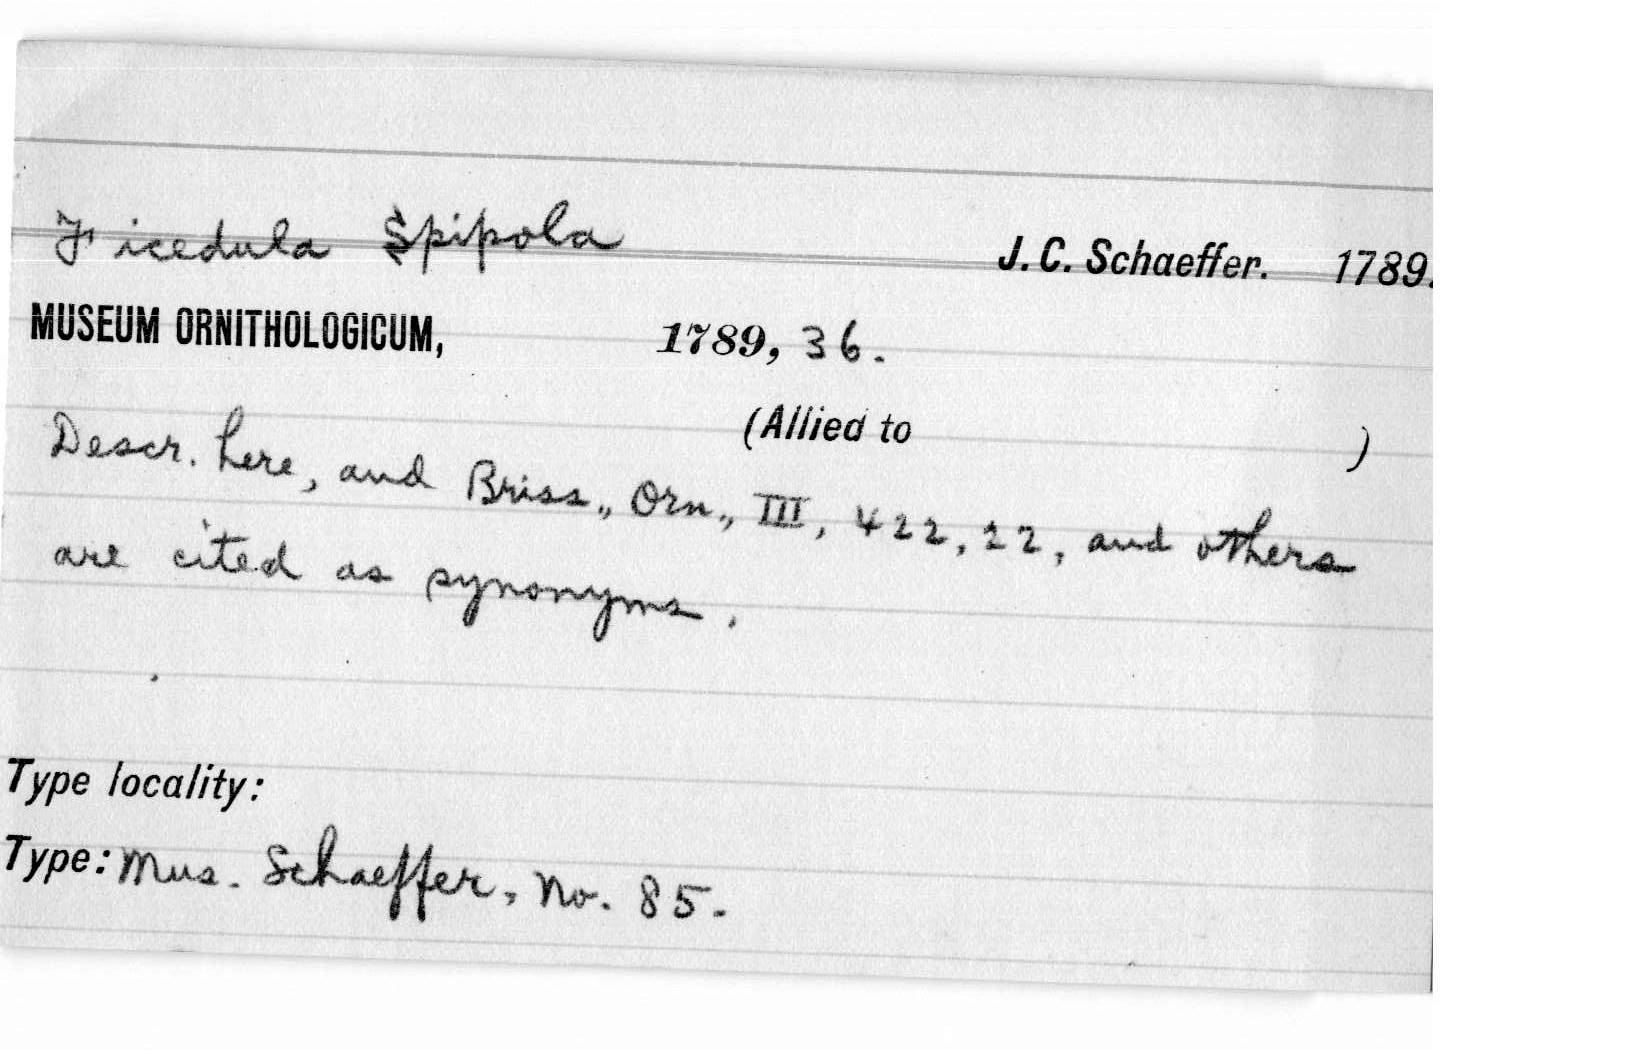 Ficedula Spipola J. C. Schaeffer. 1789.
MUSEUM ORNITHOLOGICUM, 1789, 36.
(Allied to )
Descr. here, and Briss., Orn., III, 422, 22, and others
are cited as synonyms.
Type locality:
Type: Mus. Schaeffer, No. 85.